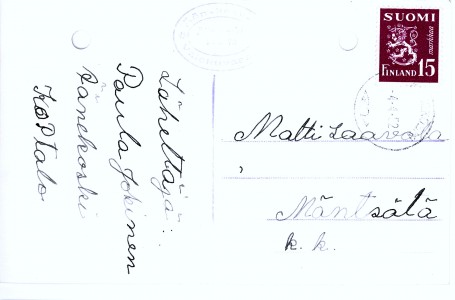 SUOMI
markkaa
FINLAND 15
Lähettäjä:
Paula Jokinen
Äänekoski
KOP talo
Matti Laavola
,
Mäntsälä
k. k.